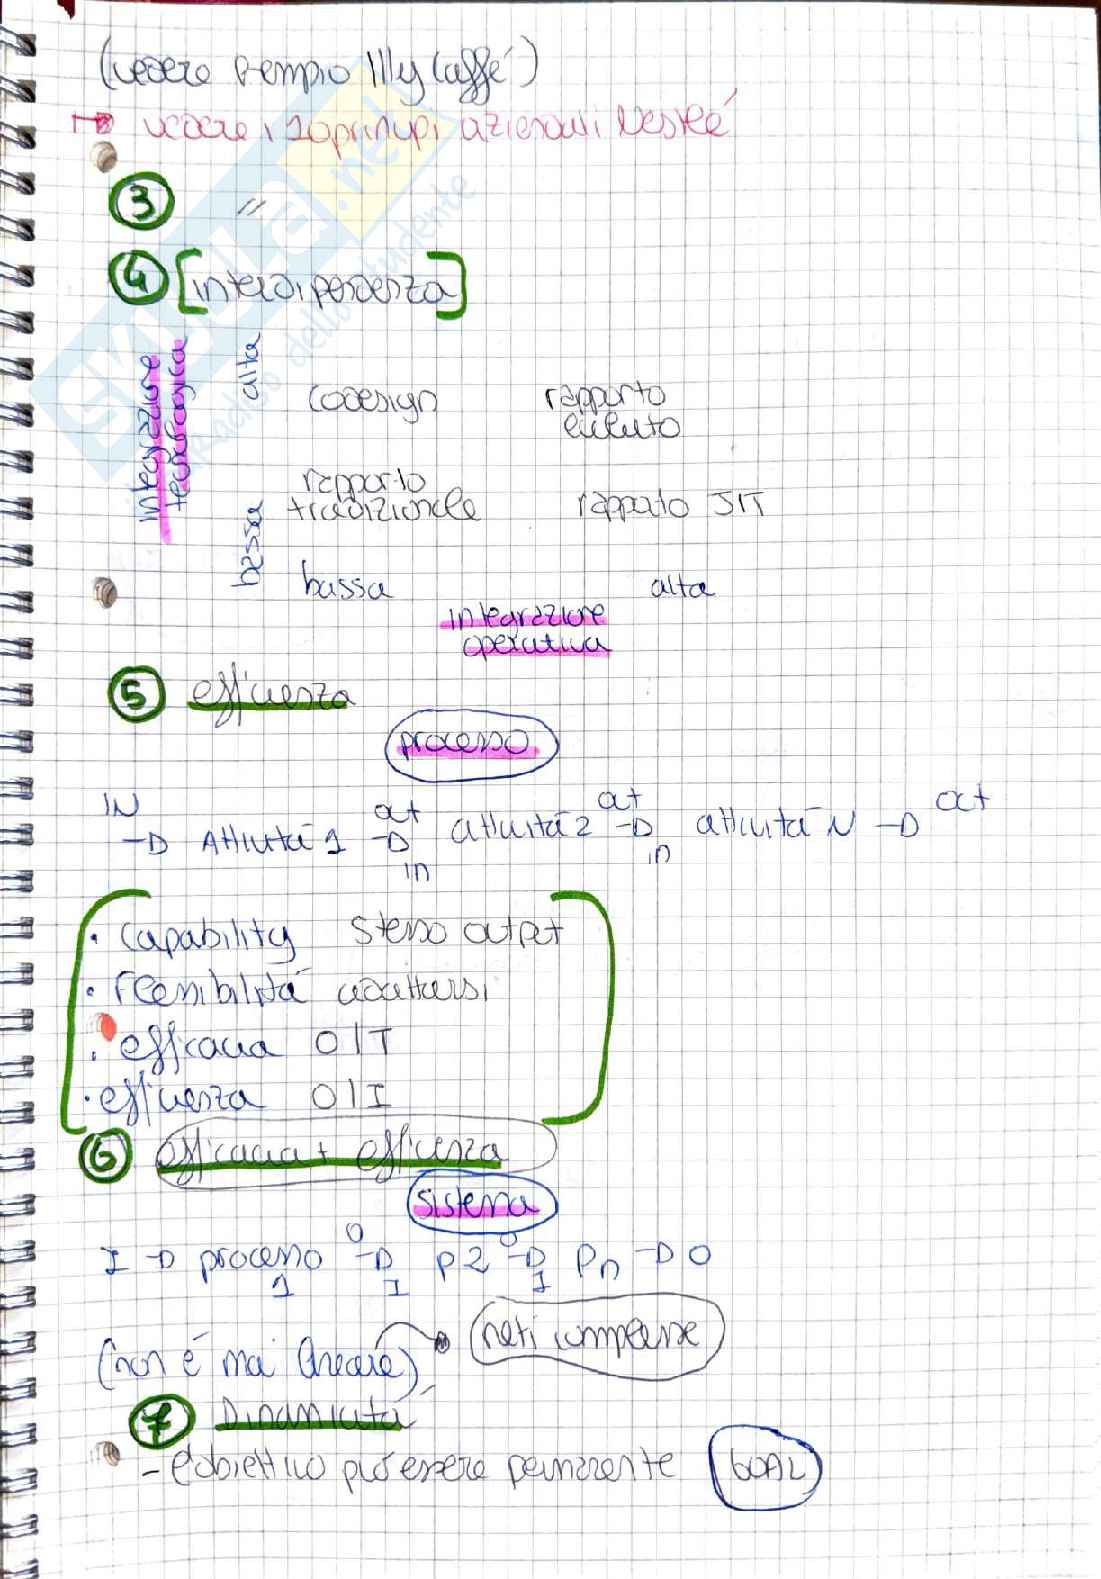 (vedere esempio Illy Caffé)
→ vedere i 10 principi aziendali Nestlé
3 //
4 [interdipendenza]
integrazione tecnologica
alta
codesign rapporto evoluto
bassa
rapporto tradizionale rapporto JIT
bassa alta
integrazione operativa
5 efficienza
processo
IN out out out
→ Attività 1 → attività 2 → attività N →
in in
• Capability stesso output
• Flessibilità adattarsi
• efficacia O/T
• efficienza O/I
6 efficacia + efficienza
sistema
I → processo 1 O → I P2 O → I Pn → O
(non è mai lineare) reti complesse
7 Dinamicità
- l'obiettivo può essere permanente GOAL
SKUOLA.net
il paradiso dello studente